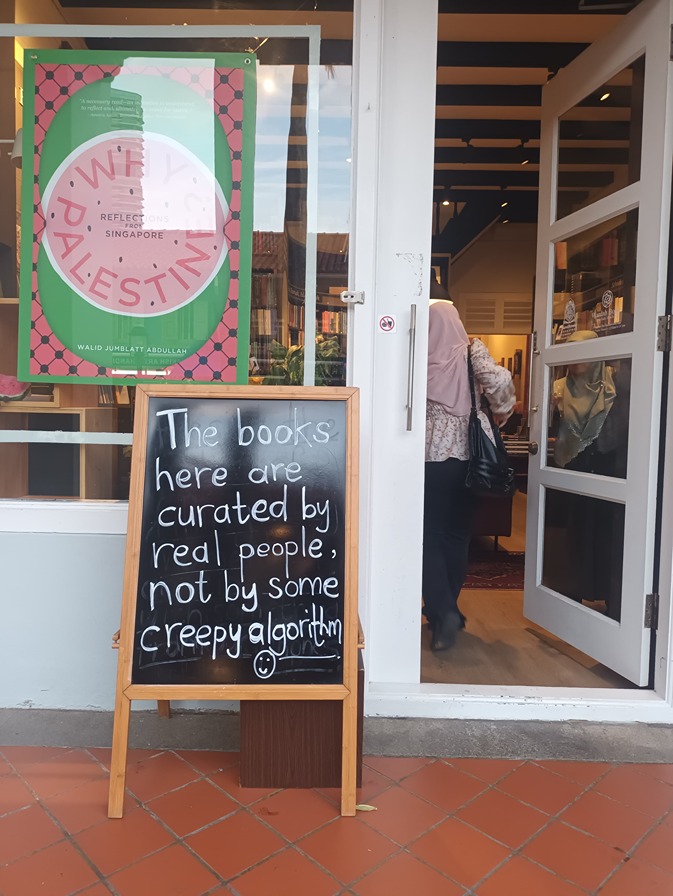 WHY
PALESTINE?
REFLECTIONS
FROM
SINGAPORE
WALID JUMBLATT ABDULLAH
The books
here are
curated by
real people,
not by some
creepy algorithm